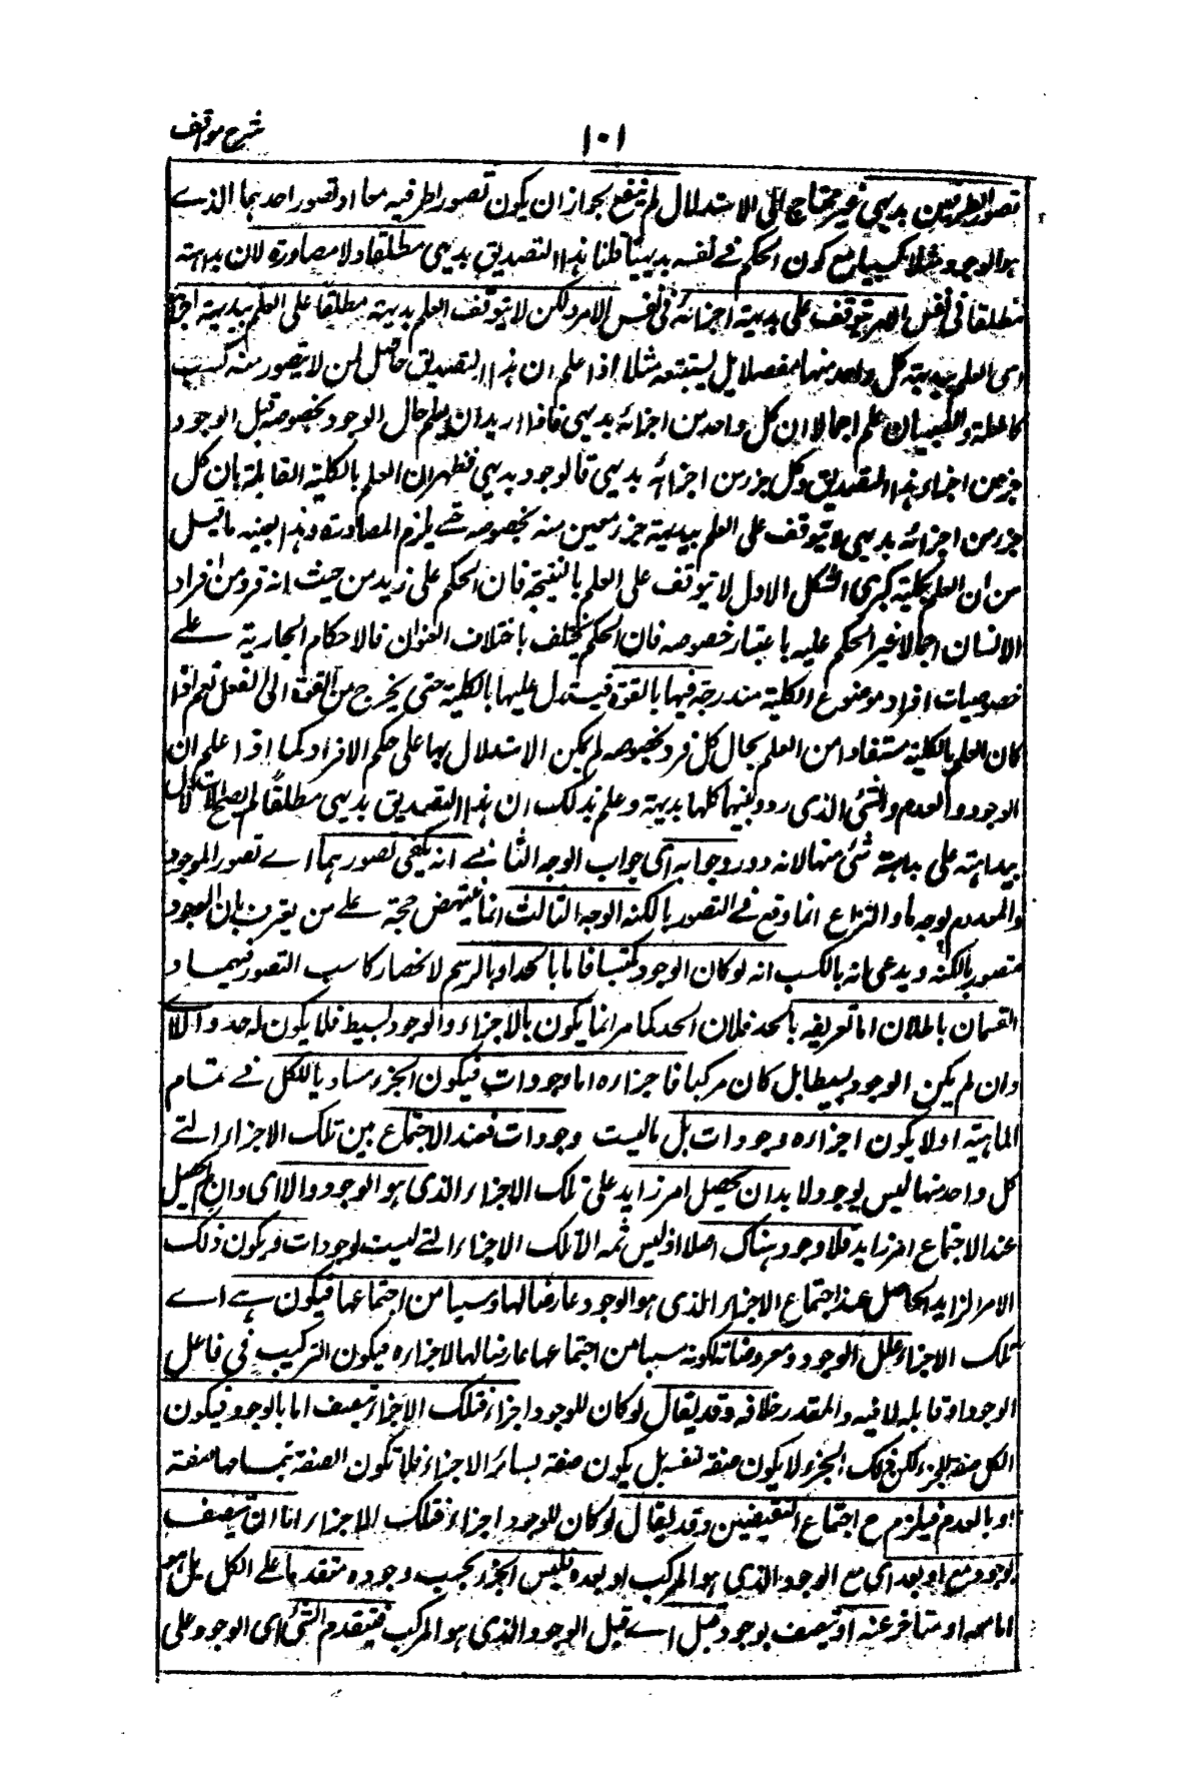 شرح مواقف
١٠١
تصور الطرفين بديهي غير محتاج الى الاستدلال لم ينفع لجواز ان يكون تصور اطرفيه معا او تصور احدهما الذے
هو الوجود مثلا كسبيا مع كون الحكم فے نفسه بديهيا قلنا هذا التصديق بديهي مطلقا ولا مصادرة لان بداهته
مطلقا في نفس الامر يتوقف على بديهية اجزائه في نفس الامر ولكن لا يتوقف العلم بديهية مطلقا على العلم ببديهية اجزا
اى العلم ببديهية كل واحد منها مفصلا بل يستتبعه مثلا اذا علم ان هذا التصديق حاصل لمن لا يتصور منه كسب
كالبله والصبيان علم اجمالا ان كل واحد من اجزائه بديهي فاذا اريد ان يعلم حال الوجود بخصوصه قيل الوجود
جزء من اجزاء هذا التصديق وكل جزء من اجزائه بديهي فالوجود بديهي فظهر ان العلم بالكلية القائلة بان كل
جزء من اجزائه بديهي لا يتوقف على العلم ببديهية جزء معين منه بخصوصه حتے يلزم المصادرة وهذا بعينه ما قيل
من ان العلم بكلية كبرى الشكل الاول لا يتوقف على العلم بالنتيجة فان الحكم على زيد من حيث انه فرد من افراد
الانسان اجمالا غير الحكم عليه باعتبار خصوصه فان الحكم يختلف باختلاف العنوان فالاحكام الجارية علے
خصوصيات افراد موضوع الكلية مندرجة فيها بالقوة فيستدل عليها بالكلية حتى يخرج من القوة الى الفعل نعم اذا
كان العلم بالكلية مستفادا من العلم بحال كل فرد بخصوصه لم يمكن الاستدلال بها على حكم الافراد كما اذا علم ان
الوجود والعدم والشئ الذى ردد بينهما كلها بديهية وعلم بذلك ان هذا التصديق بديهي مطلقا لم يصح الاستدلال
ببداهته على بداهة شئ منها لانه دور وجوابه اى جواب الوجه الثانے انه يكفى تصورهما اے تصور الموجود
والمعدوم بوجه ما والنزاع انما وقع فے التصور بالكنه الوجه الثالث انما ينتهض حجة علے من يعترف بان الوجود
متصور بالكنه ويدعى انه بالكسب انه لو كان الوجود مكتسبا فاما بالحد او بالرسم لانحصار كاسب التصور فيهما و
القسمان باطلان اما تعريفه بالحد فلان الحد كما مر انما يكون بالاجزاء والوجود بسيط فلا يكون له حد والا اى
وان لم يكن الوجود بسيطا بل كان مركبا فاجزاؤه اما وجودات فيكون الجزء مساويا للكل فے تمام
الماهية او لا يكون اجزاؤه وجودات بل ما ليست وجودات فعند الاجتماع بين تلك الاجزاء التے
كل واحد منها ليس بوجود لا بد ان يحصل امر زايد على تلك الاجزاء الذى هو الوجود والا اى وان لم يحصل
عند الاجتماع امر زايد فلا وجود هناك اصلا اذ ليس ثمه الا تلك الاجزاء التے ليست بوجودات ويكون ذلك
الامر الزايد الحاصل عند اجتماع الاجزاء الذى هو الوجود عارضا لها ومسببا من اجتماعها فيكون هے اے
تلك الاجزاء علل الوجود ومعروضاته لكونه مسببا من اجتماعها عارضا لها لا اجزاؤه فيكون التركيب في فاعل
الوجود او قابله لا فيه والمقدر خلافه وقد يقال لو كان للوجود اجزاء فتلك الاجزاء تتصف اما بالوجود فيكون
الكل صفة للجزء لكن ذلك الجزء لا يكون صفة نفسه بل يكون صفة بسائر الاجزاء فلا تكون الصفة بتمامها صفة
او بالعدم فيلزم ح اجتماع النقيضين وقد يقال لو كان للوجود اجزاء فتلك الاجزاء اما ان تتصف
بوجود مع او بعد اى مع الوجود الذى هو المركب او بعده فليس الجزء بحسب وجوده متقدما على الكل بل هو
اما معه او متأخر عنه او تتصف بوجود قبل اے قبل الوجود الذى هو المركب فيتقدم الشئ اى الوجود على